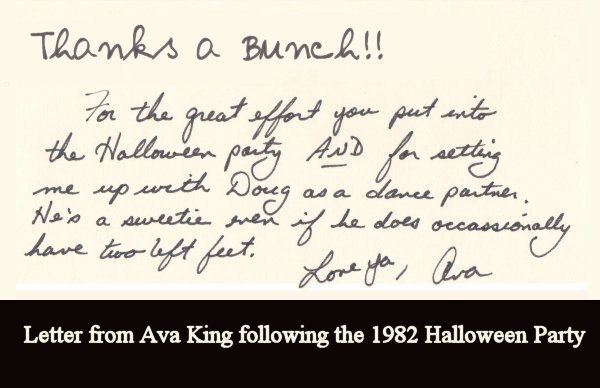 Thanks a Bunch!!
For the great effort you put into
the Halloween party AND for setting
me up with Doug as a dance partner.
He's a sweetie even if he does occassionally
have two left feet.
Love ya, Ava
Letter from Ava King following the 1982 Halloween Party